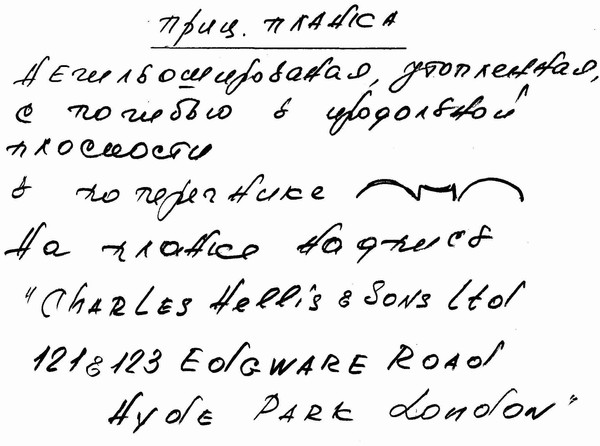 приц. планка
негильошированая, утопленная,
с погибью в продольной
плоскости
в поперечнике
На планке надпись
"Charles Hellis & Sons Ltd
121 & 123 Edgware Road
Hyde Park London"